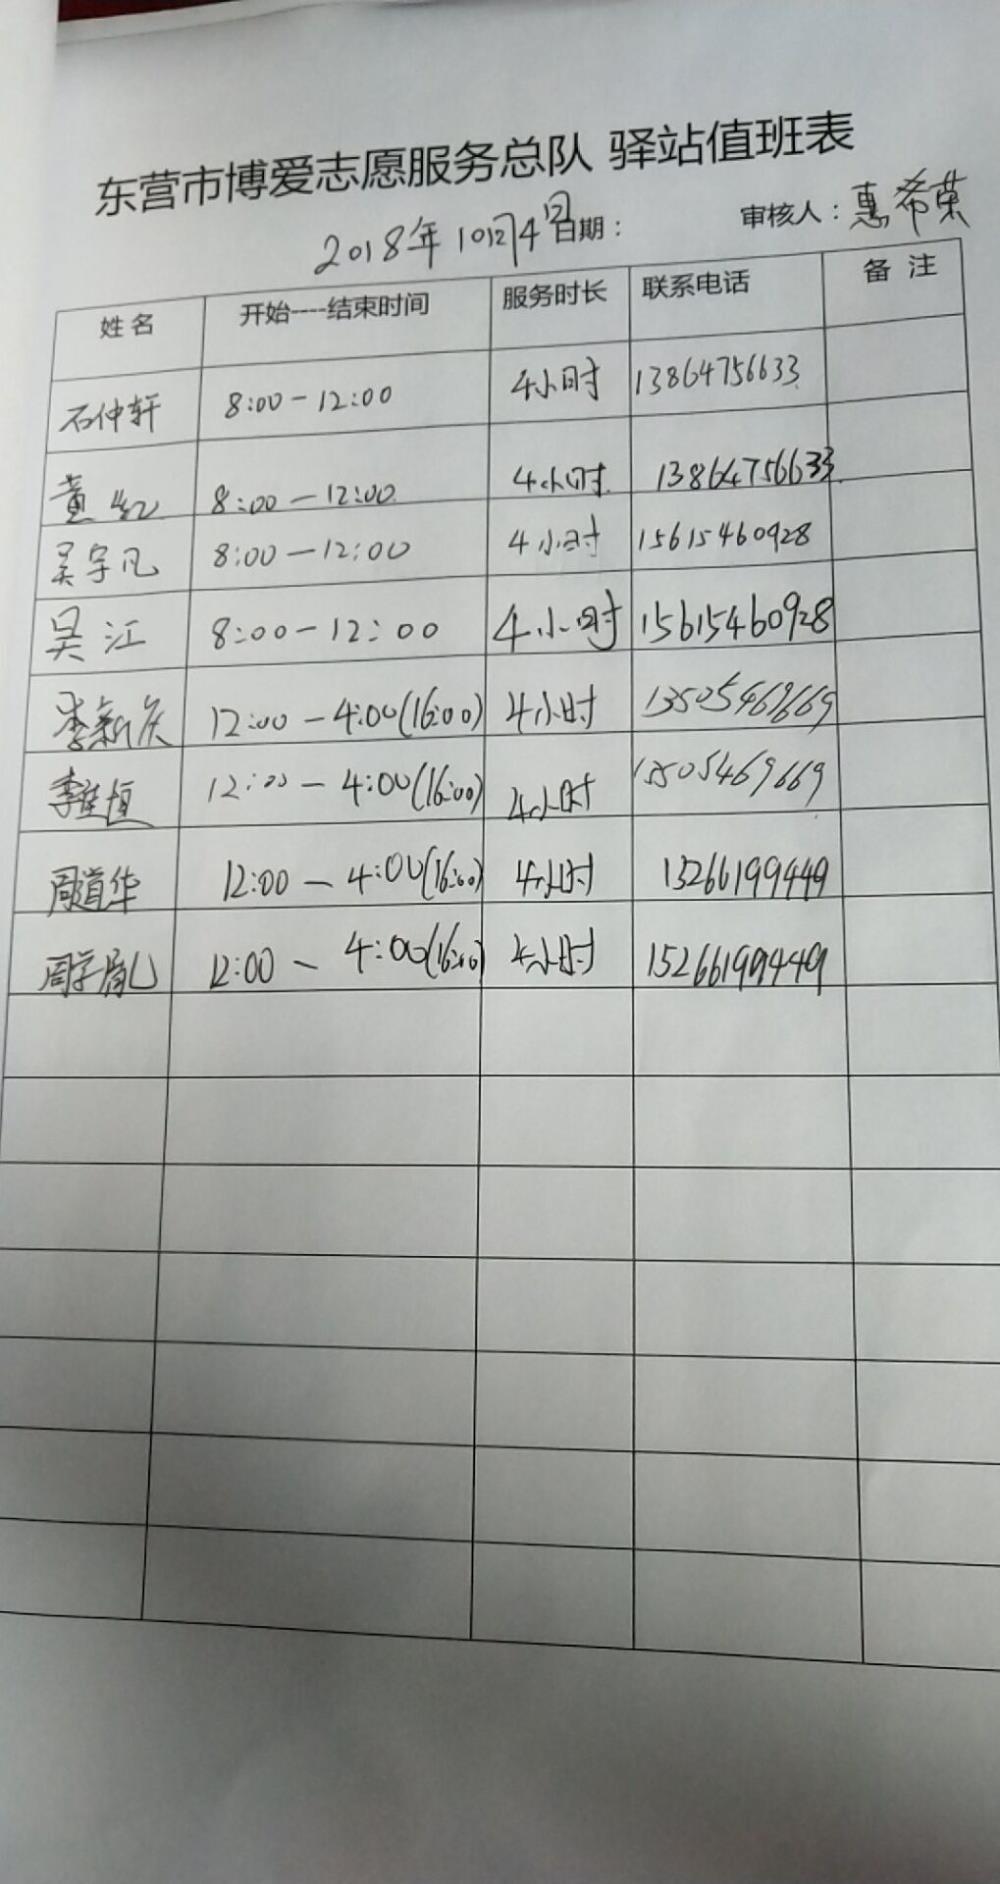 东营市博爱志愿服务总队 驿站值班表
2018年10月4日 日期： 审核人：惠希荣
姓名 开始----结束时间 服务时长 联系电话 备 注
石仲轩 8:00－12:00 4小时 13864756633
黄红 8:00－12:00 4小时 13864756633
吴宇凡 8:00－12:00 4小时 15615460928
吴江 8:00－12:00 4小时 15615460928
李新庆 12:00－4:00(16:00) 4小时
12:00－4:00(16:00) 4小时
周道华 12:00－4:00(16:00) 4小时
12:00－4:00(16:00) 4小时 15266199449